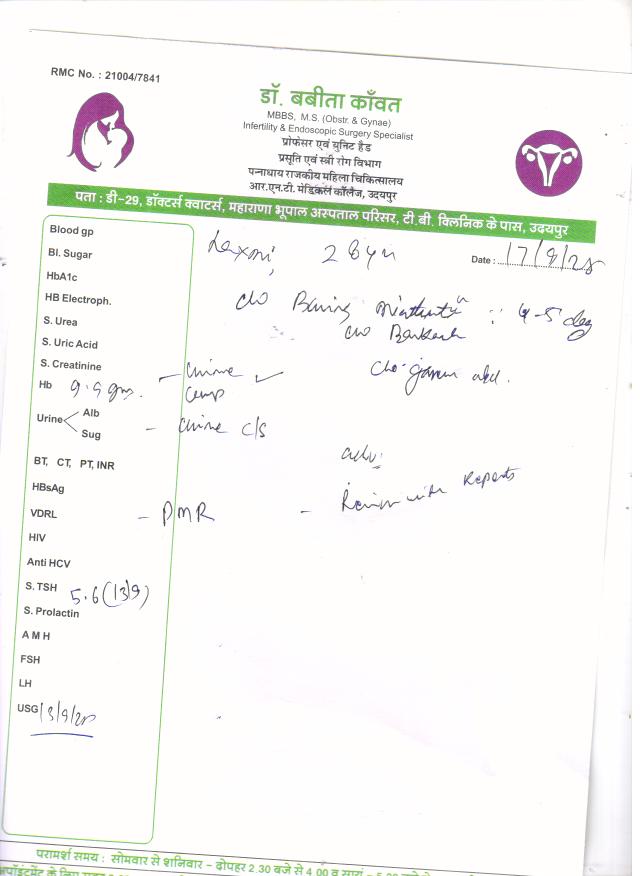 RMC No. : 21004/7841
डॉ. बबीता काँवत
MBBS, M.S. (Obstr. & Gynae)
Infertility & Endoscopic Surgery Specialist
प्रोफेसर एवं युनिट हैड
प्रसूति एवं स्त्री रोग विभाग
पन्नाधाय राजकीय महिला चिकित्सालय
आर.एन.टी. मेडिकल कॉलेज, उदयपुर
पता : डी-29, डॉक्टर्स क्वाटर्स, महाराणा भूपाल अस्पताल परिसर, टी.बी. क्लिनिक के पास, उदयपुर
Laxmi, 28yr Date : 17/9/25
c/o Burning Micturition 4-5 day
c/o Backache
Blood gp
Bl. Sugar
HbA1c
HB Electroph.
S. Urea
S. Uric Acid
S. Creatinine
Hb 9.9 gm.
Urine Alb
Sug
- Urine
- Urine c/s
adv:
BT, CT, PT, INR
HBsAg
- Review with reports
VDRL
- PMR
HIV
Anti HCV
S. TSH 5.6 (13/9)
S. Prolactin
A M H
FSH
LH
USG 13/9/25
परामर्श समय : सोमवार से शनिवार - दोपहर 2.30 बजे से 4.00 व सायं